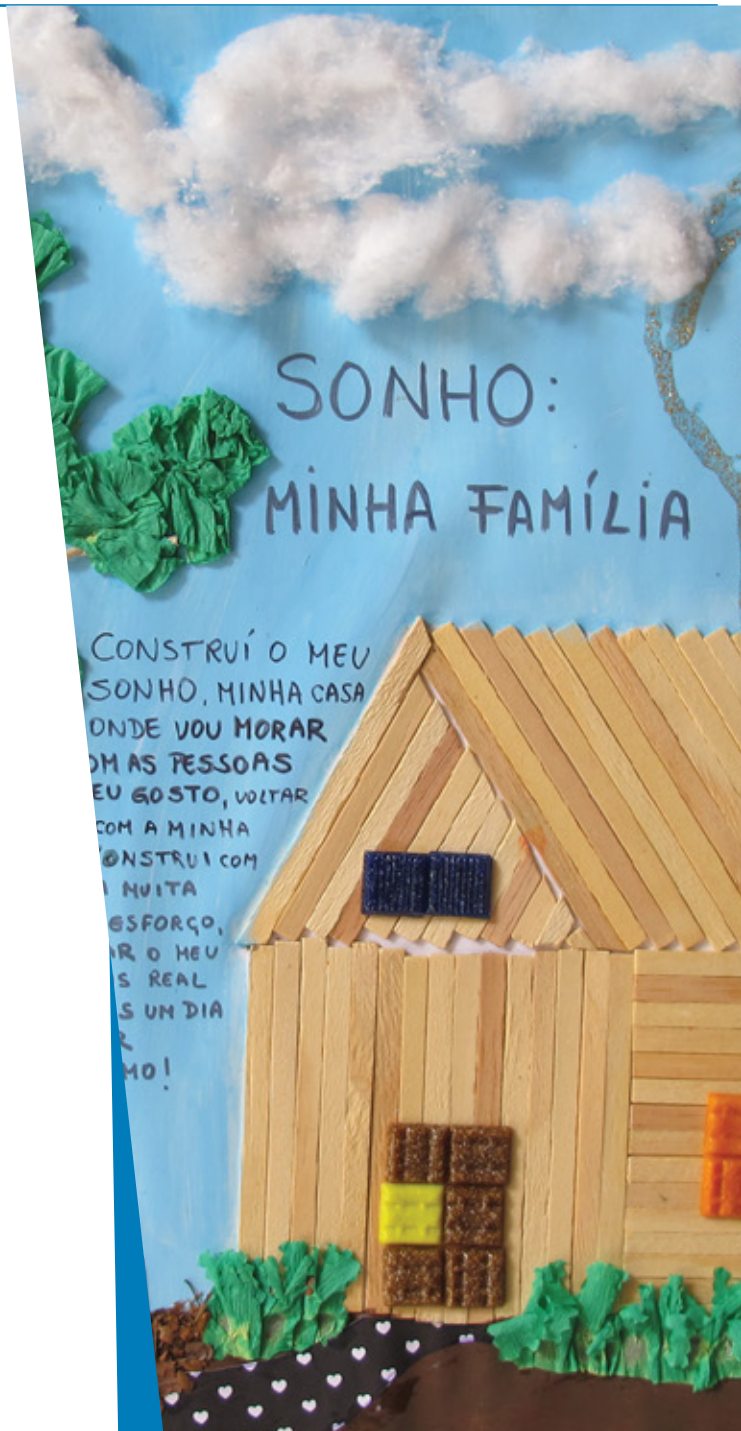 SONHO:
MINHA FAMÍLIA
CONSTRUÍ O MEU
SONHO, MINHA CASA
ONDE VOU MORAR
OM AS PESSOAS
EU GOSTO, VOLTAR
COM A MINHA
ONSTRUI COM
MUITA
ESFORÇO,
AR O MEU
S REAL
S UM DIA
R
MO!